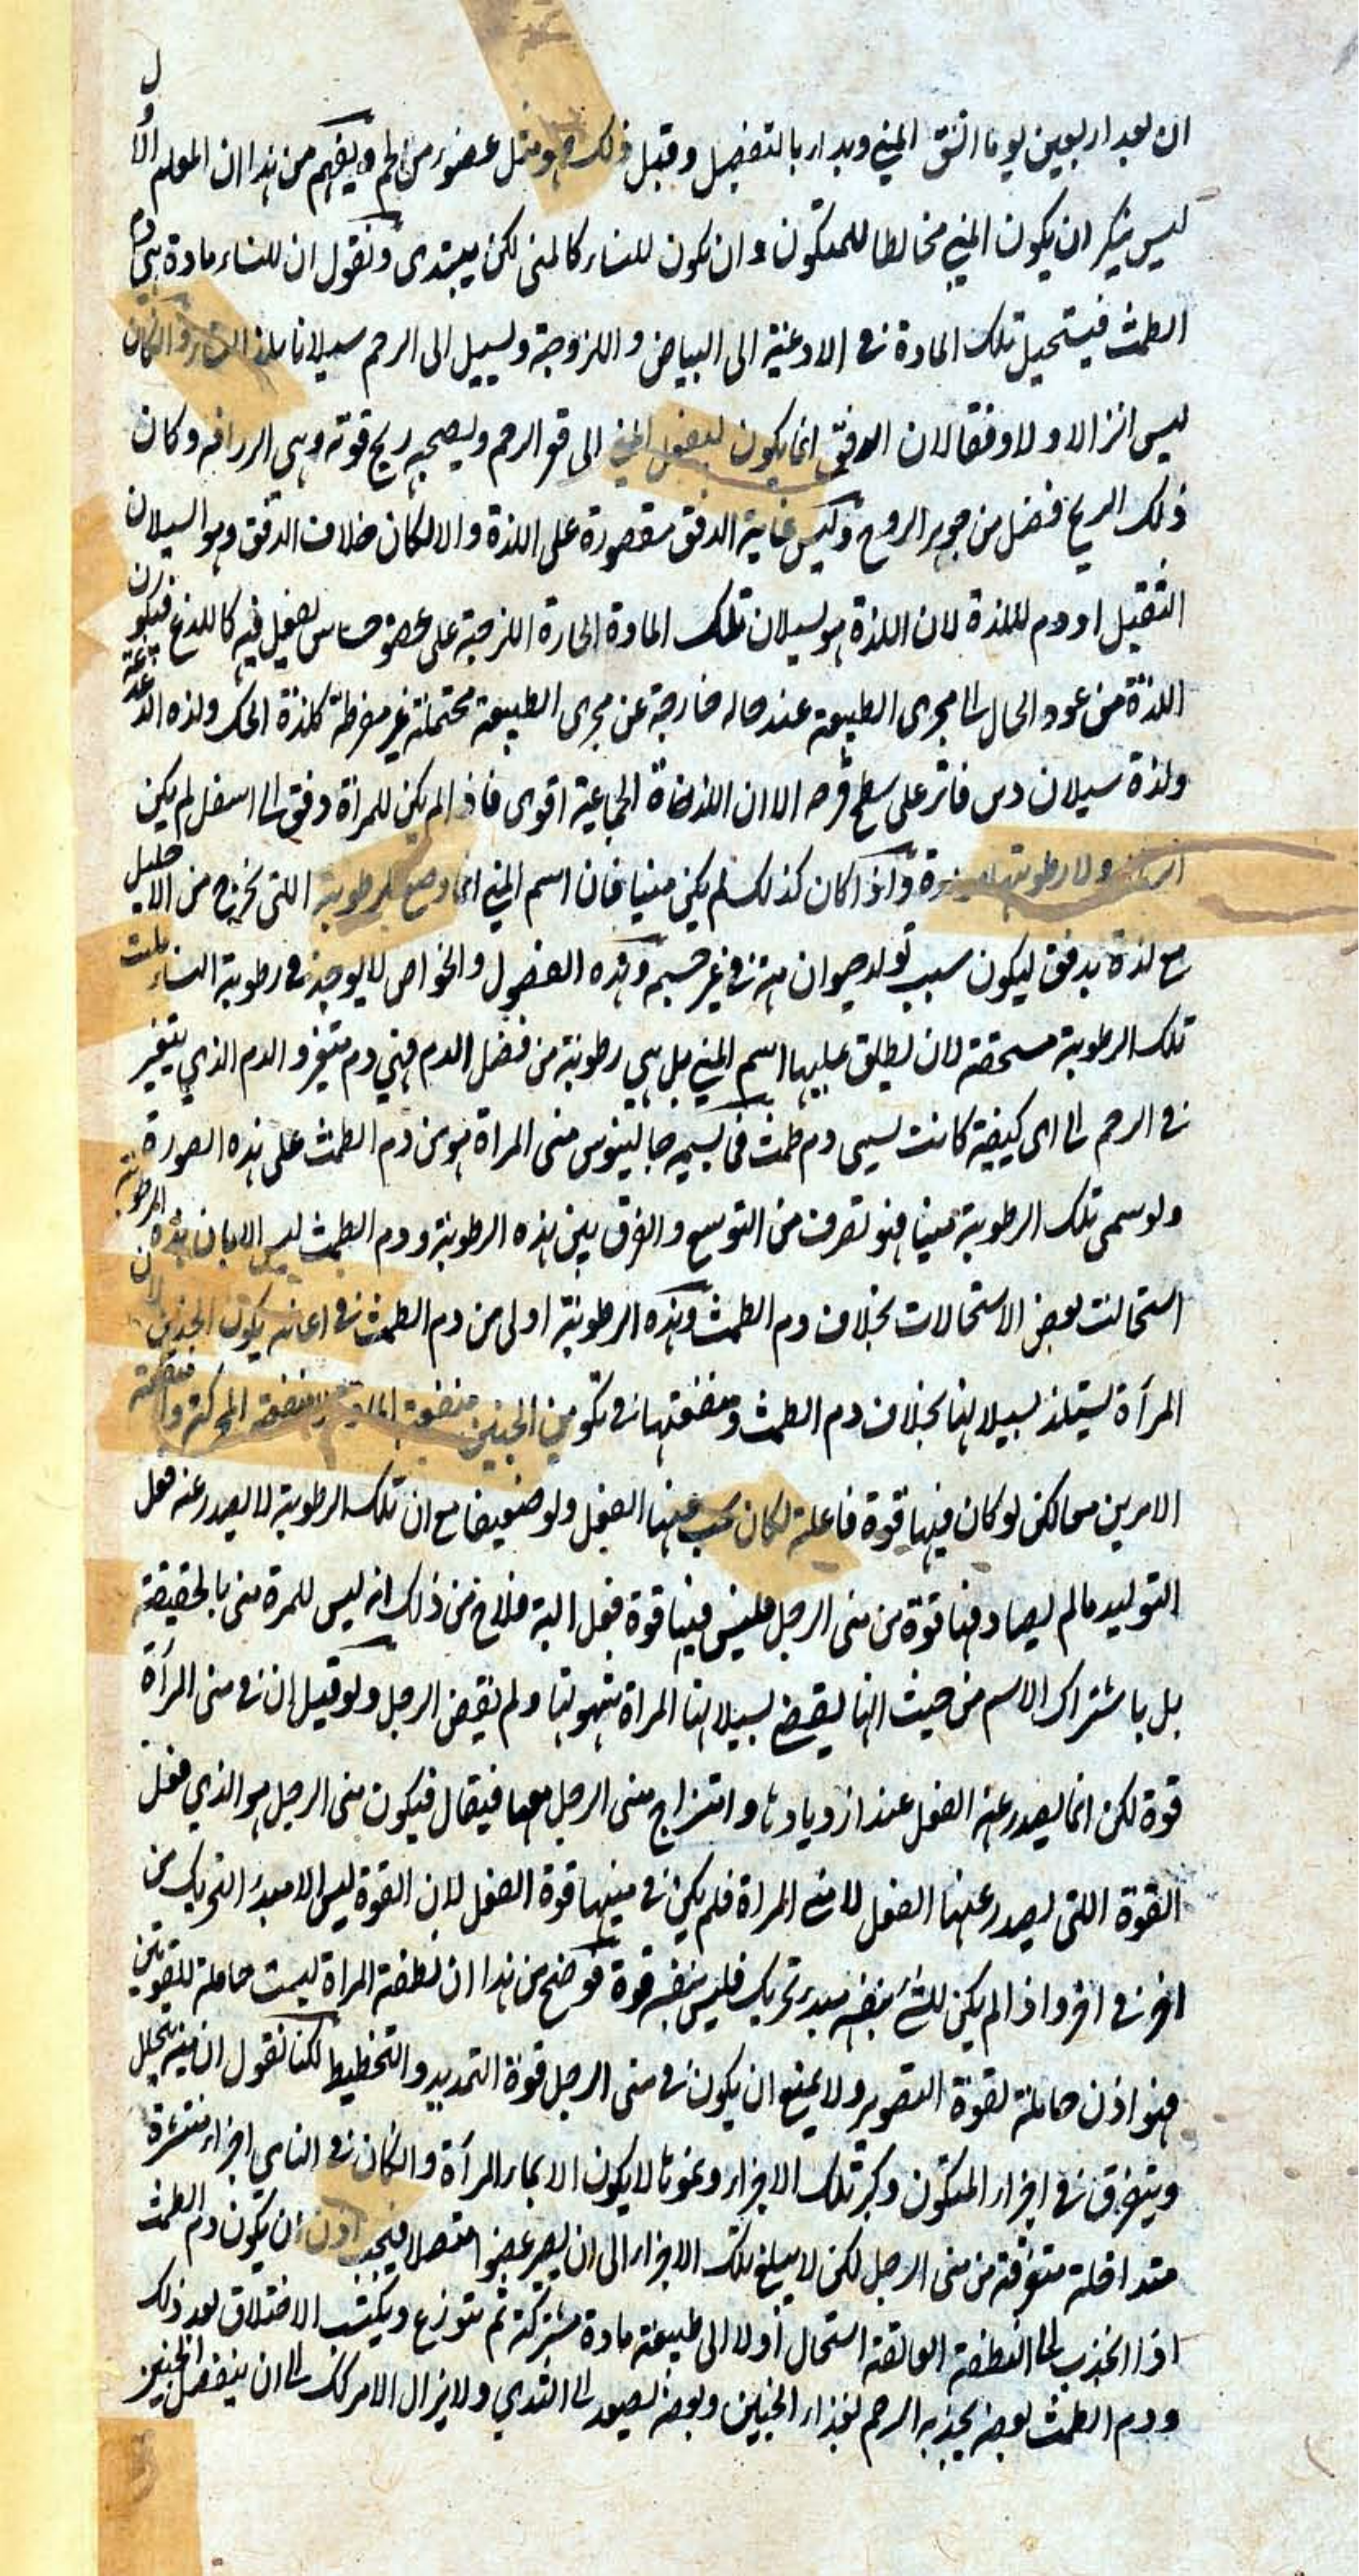 ان بعد اربعين يوما انشق المني وبدار بالتفصيل وقبل ذلك هو مثل عضو من لحم ويفهم من هذا ان المعلم الاول
ليس ينكر ان يكون المني مخالطا للمتكون وان يكون للنساء كالمني لكن يبتدي ونقول ان للنساء مادة هي دم
الطمث فيستحيل تلك المادة في الاوعية الى البياض واللزوجة ويسيل الى الرحم سيلانا
ليس انزالا ولا دفقا لان الدفق انما يكون الى قعر الرحم ويصحبه ريح قوته وهي الزراقه وكان
ذلك الريح فضل من جوهر الروح وليس غاية الدفق مقصورة على اللذة والا لكان خلاف الدفق وهو السيلان
الثقيل ادوم للذة لان اللذة هو لسيلان تلك المادة الحارة اللزجة على عضو حساس يفعل فيه كاللدغ فيكون
اللذة من عود الحال الى مجرى الطبيعة عند حاله خارجة عن مجرى الطبيعة محتملة غير مفرطة كلذة الحك ولذة الدغدغة
ولذة سيلان دهن فاتر على سطح قرحه الا ان اللذاذة الجماعية اقوى فاذا لم يكن للمرأة دفق الى اسفل لم يكن
ولا رطوبتها واذا كان كذلك لم يكن منيا فان اسم المني انما وضع للرطوبة التي تخرج من الاحليل
مع لذة بدفق ليكون سبب تولد حيوان منه في غير جسمه وهذه الفصول والخواص لا يوجد في رطوبة النساء فليست
تلك الرطوبة مستحقة لان يطلق عليها اسم المني بل هي رطوبة من فضل الدم فهي دم متغير والدم الذي يتغير
في الرحم الى اى كيفية كانت يسمى دم طمث فما يسميه جالينوس منى المراة هو من دم الطمث على هذه الصورة
ولو سمى تلك الرطوبة منيا فهو تصرف من التوسع والفرق بين هذه الرطوبة ودم الطمث ليس الا بان هذه الرطوبة
استحالت بعض الاستحالات بخلاف دم الطمث وهذه الرطوبة اولى من دم الطمث في اعانه يكون الجنين لان
المرأة تستلذ بسيلانها بخلاف دم الطمث ومنفعتها في تكوين الجنين منفعة المادة لا منفعة المحركة ومنفعة
الامرين معا لكن لو كان فيها قوة فاعلة لكان يجب منها الفعل ولو ضعيفا مع ان تلك الرطوبة لا يصدر عنه فعل
التوليد ما لم يصادفها قوة من منى الرجل فليس فيها قوة فعل البة فلاح من ذلك انه ليس للمرة منى بالحقيقة
بل باشتراك الاسم من حيث انها يقضي بسيلانها المراة شهوتها ولم يقض الرجل ولو قيل ان في منى المرأة
قوة لكن انما يصدر عنه الفعل عند ازديادها وامتزاج منى الرجل معها فيقال فيكون منى الرجل هو الذي فعل
القوة التي يصدر عنها الفعل لا منى المراة فلم يكن في منيها قوة الفعل لان القوة ليس الا مبدء التحريك من
اخر في اخر واذا لم يكن للشئ بنفسه مبدء تحريك فليس بنفسه قوة فوضح من هذا ان نطفة المراة ليست حاملة للقوتين
فهو اذن حاملة لقوة التصوير ولا يمنع ان يكون في منى الرجل قوة التمديد والتخطيط لكنا نقول ان منيه يتحلل
ويتفرق في اجزاء المتكون وكبر تلك الاجزاء ونموها لا يكون الا بماء المرأة والكان في الناس اجزاء منتشرة
متداخلة متفرقة من منى الرجل لكن لا يبلغ تلك الاجزاء الى ان يصير عضوا متصلا فيجب اذن ان يكون دم الطمث
اذا انجذب الى النطفة العالقة استحال أولا الى طبيعة مادة مشتركة ثم يتوزع ويكتسب الاختلاق بعد ذلك
ودم الطمث بعضه يجذبه الرحم لغذاء الجنين وبعضه يصعد الى الثدي ولا يزال الامر كك الى ان ينفصل الجنين